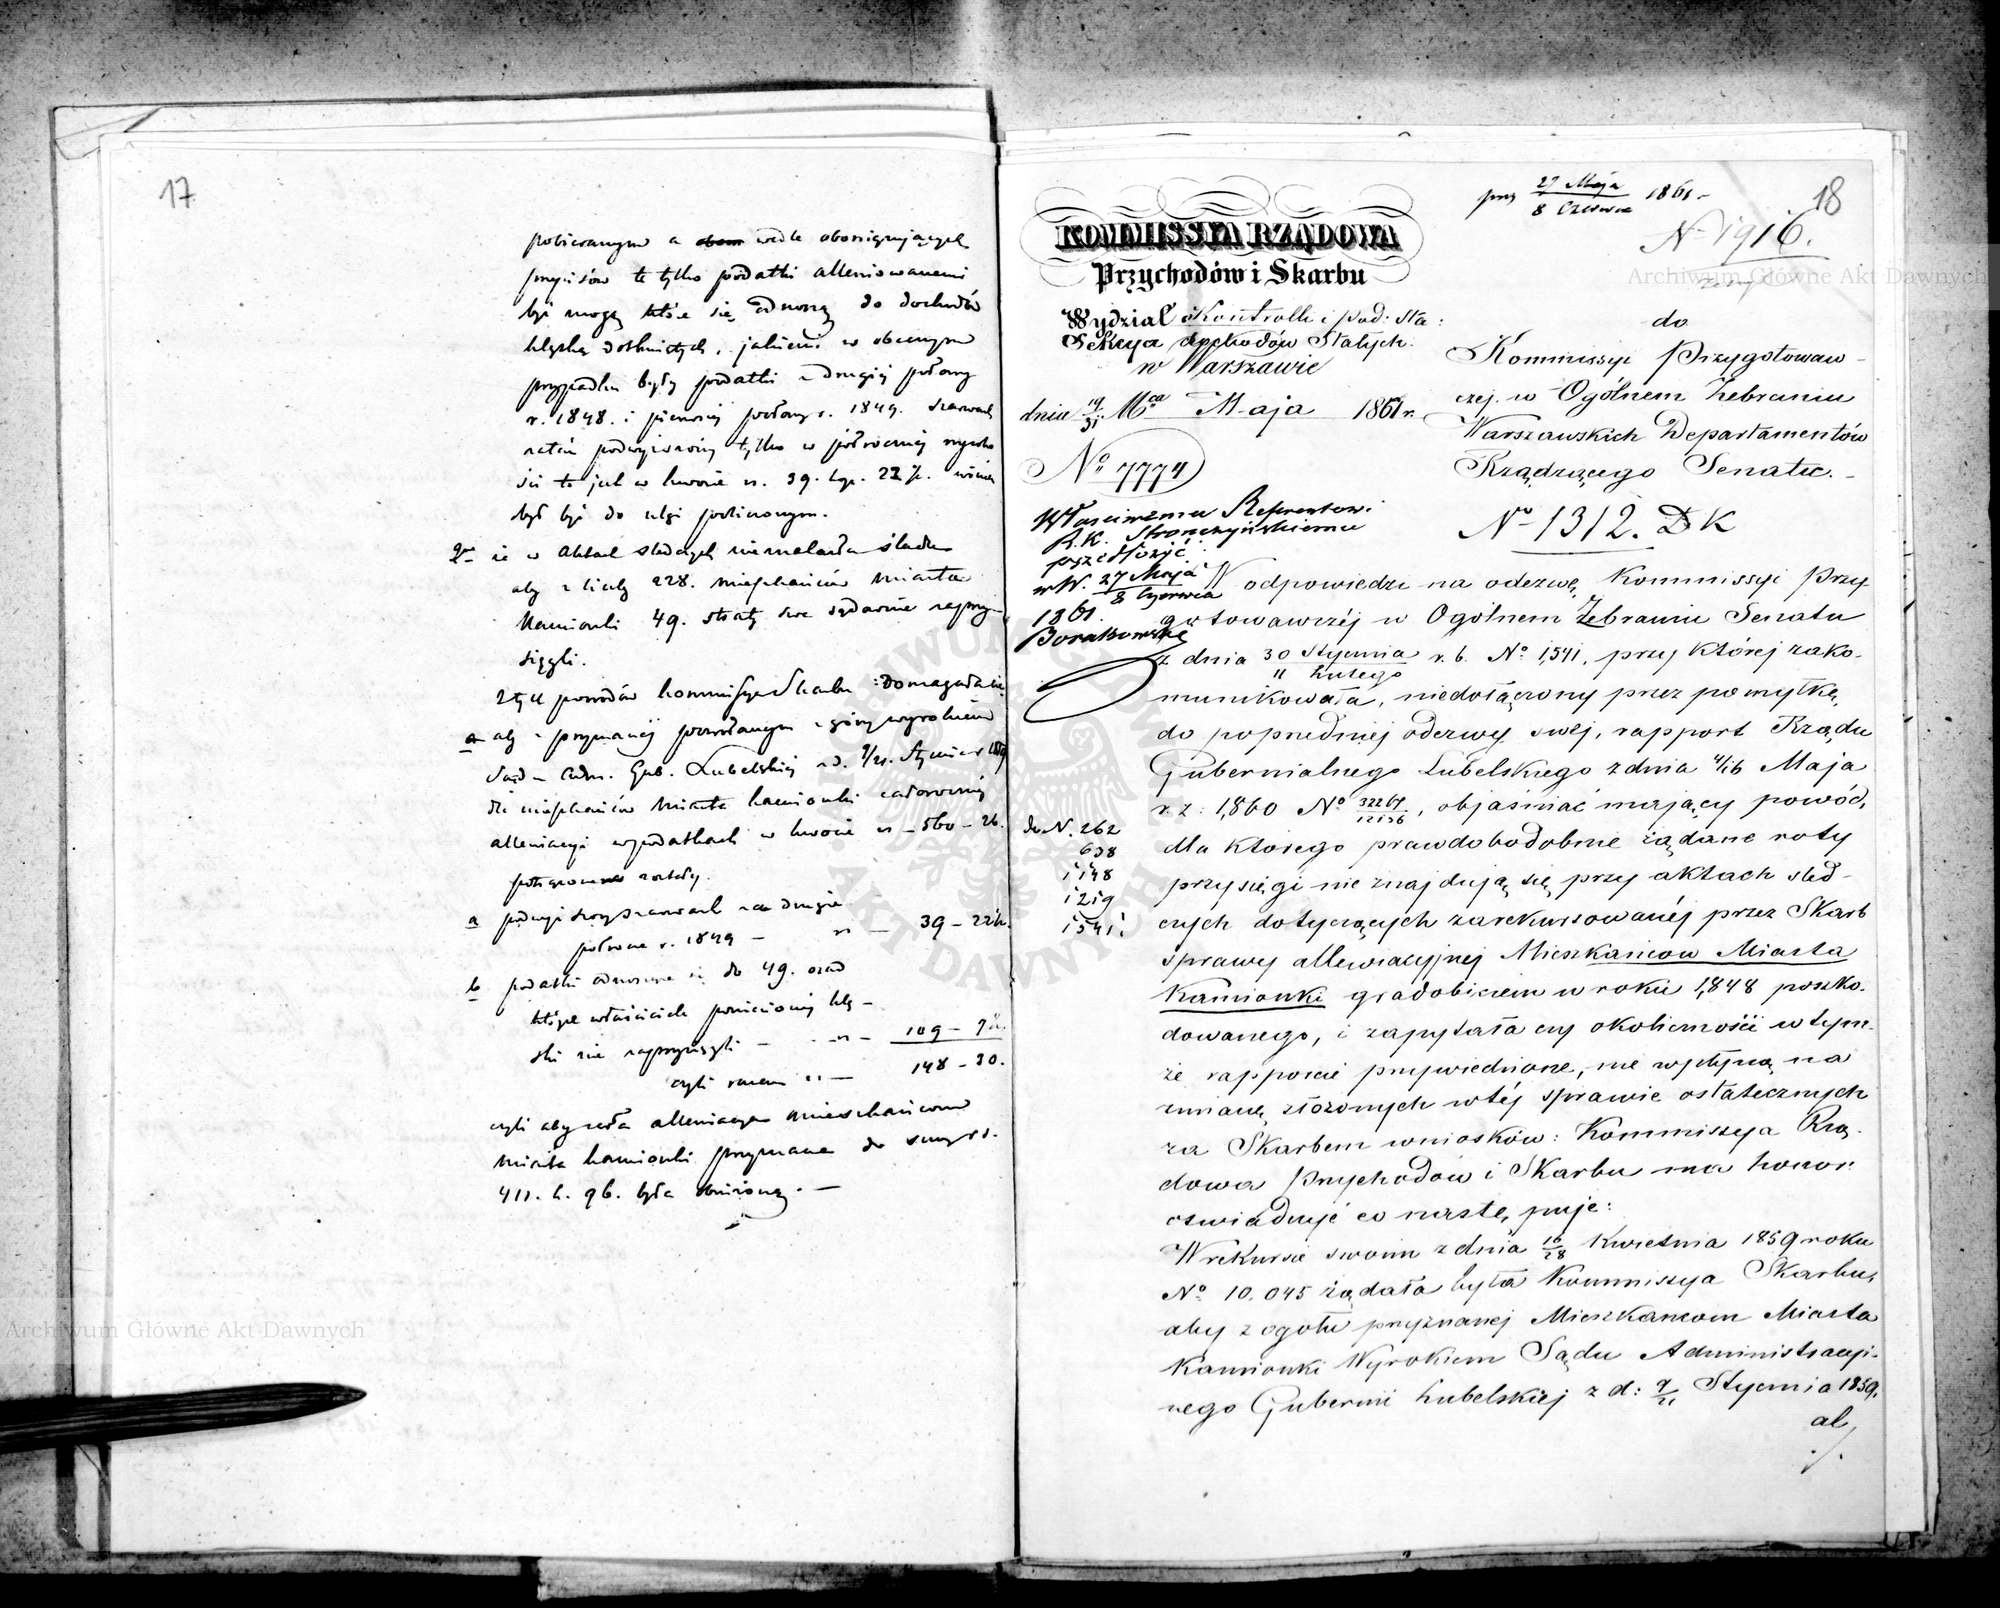 17
pobieranym a wedle obowiązujących
przepisów te tylko podatki allewiowanemi
być mogą które się odnoszą do dochodów
klęską dotkniętych, jakiemi w obecnym
przypadku były podatki z drugiej połowy
r. 1848. i pierwszej połowy r. 1849.
zatém tylko w półrocznej
to jest w kwocie rs. 39. kop. 22½.
być do ulgi policzonym.
2re że w aktach śledczych nie znalazła śladu
aby z liczby 228. mieszkańców miasta
Kamionki 49. straty swe sądownie zaprzy-
sięgli.
Z tych powodów Kommissya Skarbu domagała się
aby z przyznanej powołanym z góry wyrokiem
Sądu Adm. Gub. Lubelskiej z d. 9/21. Stycznia 1859
dla mieszkańców Miasta Kamionki całorocznej
allewiacyi w podatkach w kwocie rs – 560 – 26.
potrącone zostały.
a za drugie
półrocze r. 1849 — rs — 39 – 22½.
b podatki odnoszące się do 49. osad
których właściciele poniesionej klę-
ski nie zaprzysięgli — rs — 109 – 7½.
czyli razem rs — 148 – 30.
czyli aby cała allewiacya mieszkańcom
miasta Kamionki przyznana do summy rs.
411. k. 96. była zniżoną. —
18
prez 27 Maja / 8 Czerwca 1861 –
N 1916.
KOMMISSYA RZĄDOWA
Przychodów i Skarbu
Wydział Kontrolli i Pod: Sta:
Sekcya dochodów Stałych.
w Warszawie
dnia 19/31 Mca Maja 1861 r.
No 7774
do
Kommissyi Przygotowaw-
czej w Ogólnem Zebraniu
Warszawskich Departamentów
Rządzącego Senatu. –
No 1312. DK
Właściwemu Referentowi
R.K. Stronczyńskiemu
przedłożyć
w W. 27 Maja / 8 Czerwca
1861.
Borakowski
do N. 262
638
1148
1219
1541.
W odpowiedzi na odezwę Kommissyi Przy-
gotowawczéj w Ogólnem Zebraniu Senatu
z dnia 30 Stycznia / 11 Lutego r. b. No 1,541, przy której zako-
munikowała, niedołączony przez pomyłkę,
do poprzedniej odezwy swéj, rapport Rządu
Gubernialnego Lubelskiego z dnia 4/16 Maja
r. z: 1,860 No 32267/12136, objaśniać mający powód,
dla którego prawdobodobnie żądane roty
przysięgi nie znajdują się przy aktach śled-
czych dotyczących zarekursowanéj przez Skarb
sprawy allewiacyjnej Mieszkancow Miasta
Kamionki gradobiciem w roku 1,848 poszko-
dowanego, i zapytała czy okoliczności w tym-
że rapporcie przywiedzione, nie wpłyną na
zmianę złożonych w téj sprawie ostatecznych
za Skarbem wniosków: Kommissya Rzą-
dowa Przychodów i Skarbu ma honor
oświadczyć co nastę,puje:
W rekursie swoim z dnia 16/28 Kwietnia 1859 roku
No 10.045 żądała była Kommissya Skarbu,
aby z ogółu przyznanej Mieszkancom Miasta
Kamionki Wyrokiem Sądu Administracyj-
nego Gubernii Lubelskiej z d: 9/21 Stycznia 1859.
al
./.
Archiwum Główne Akt Dawnych
Archiwum Główne Akt Dawnych
ARCHIWUM GŁÓWNE AKT DAWNYCH